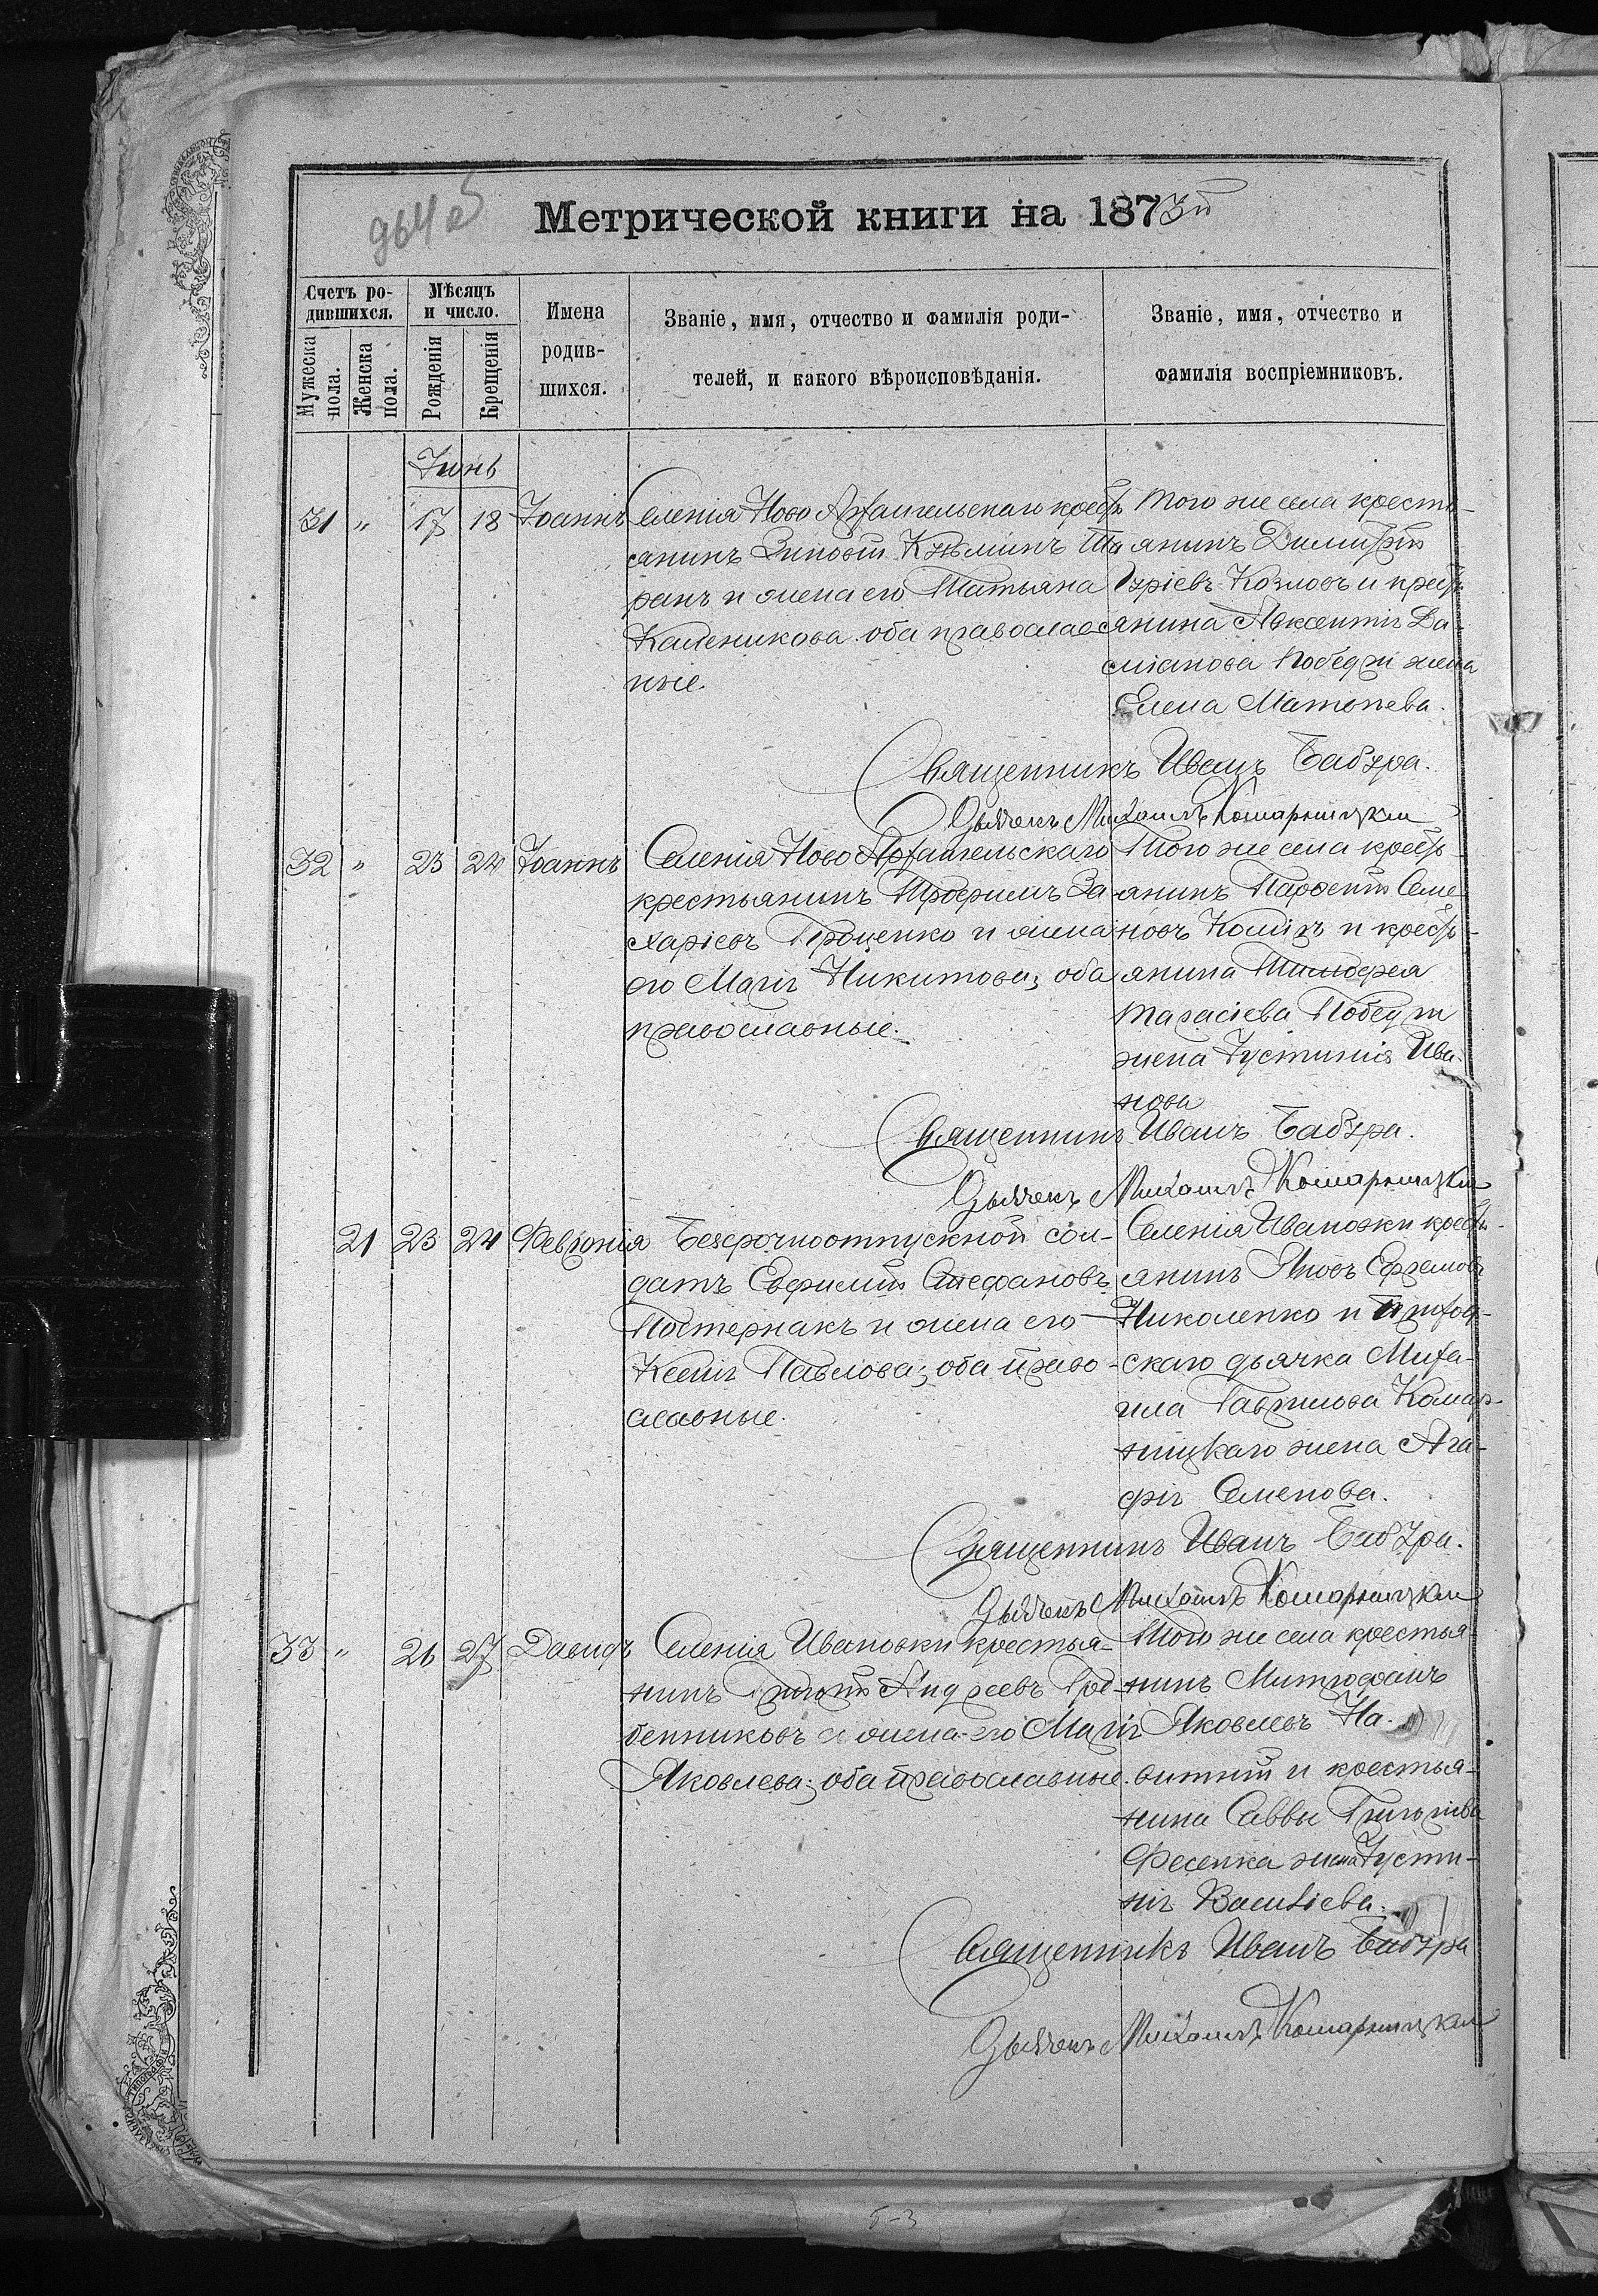 Метрической книги на 1873й
Счетъ ро-
дившихся.
Мужеска пола.
Женска пола.
Мѣсяцъ
и число.
Рожденія
Крещенія
Имена
родив-
шихся.
Званіе, имя, отчество и фамилія роди-
телей, и какого вѣроисповѣданія.
Званіе, имя, отчество и
фамилія воспріемниковъ.
Іюнь
31 " 17 18 Іоаннъ
Селенія Ново Архангельскаго кресть
янинъ Зиновій Кузьминъ
ранъ и жена его Татьяна
Каленикова оба православ
ные.
Того же села кресть-
янинъ Димитрій
Юріевъ Козловъ и кресть
янина Авксентія Да-
міанова жена
Елена Матѳеева.
Священникъ Иванъ Бабура.
Дьячекъ Михаилъ Комарницкій
32 " 23 24 Іоаннъ
Селенія Ново Архангельскаго
крестьянинъ Трофимъ За
харіевъ Проценко и жена
его Марія Никитова; оба
православные.
Того же села кресть-
янинъ Парѳеній Семе
новъ и кресть-
янина Тимоѳея
Тарасіева
жена Іустинія Ива-
нова
Священникъ Иванъ Бабура.
Дьячекъ Михаилъ Комарницкій
21 23 24 Февронія
Безсрочноотпускной сол-
датъ Евфимій Стефановъ
Постернакъ и жена его
Ксенія Павлова; оба право-
славные.
Селенія Ивановки кресть-
янинъ Яковъ Ефремовъ
Николенко и приход-
скаго дьячка Миха-
ила Гаврилова Комар-
ницкаго жена Ага-
фія Семенова.
Священникъ Иванъ Бабура.
Дьячекъ Михаилъ Комарницкій
33 " 26 27 Давидъ
Селенія Ивановки крестья-
нинъ Григорій Андреевъ Гре-
бенниковъ и жена его Марія
Яковлева; оба православные.
Того же села крестья-
нинъ Митрофанъ
Яковлевъ На-
витній и крестья-
нина Саввы Григоріева
Фесенка жена Іусти-
нія Василіева.
Священникъ Иванъ Бабура
Дьячекъ Михаилъ Комарницкій
5-3